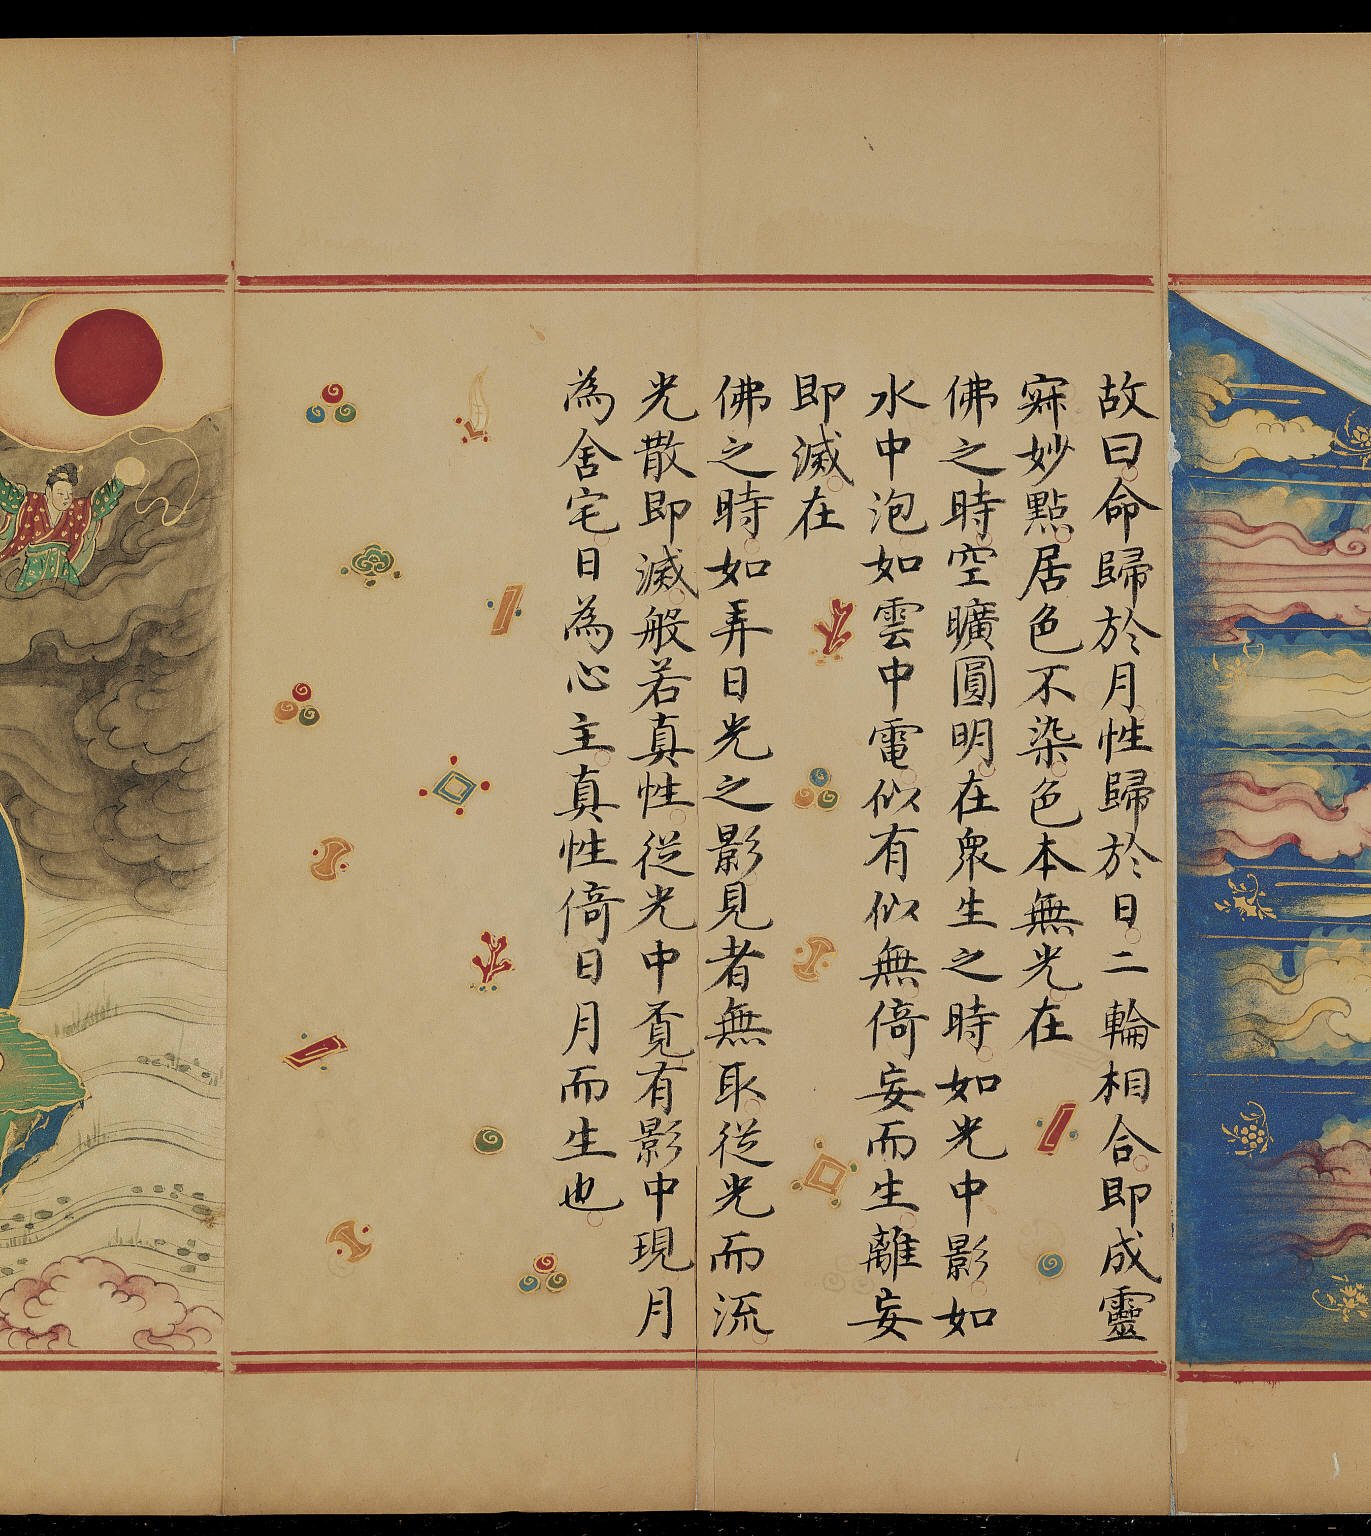 故曰命歸於月性歸於日二輪相合即成靈
寐妙點居色不染色本無光在
佛之時空曠圓明在衆生之時如光中影如
水中泡如雲中電似有似無倚妄而生離妄
即滅在
佛之時如弄日光之影見者無取從光而流
光散即滅般若真性從光中覔有影中現月
為舍宅日為心主真性倚日月而生也